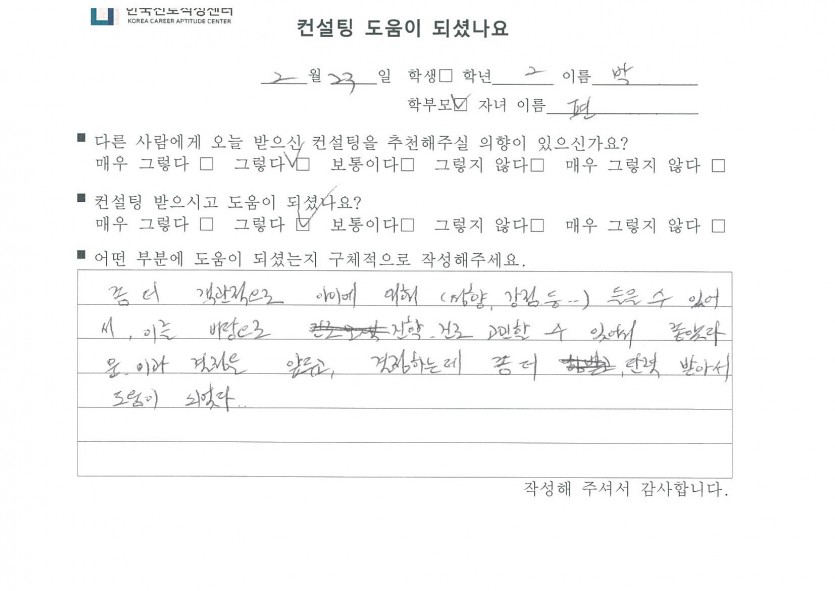 한국진로적성센터
KOREA CAREER APTITUDE CENTER
컨설팅 도움이 되셨나요
2 월 23 일 학생□ 학년 2 이름 박
학부모☑ 자녀 이름 편
■ 다른 사람에게 오늘 받으신 컨설팅을 추천해주실 의향이 있으신가요?
매우 그렇다 □ 그렇다 ☑ 보통이다□ 그렇지 않다□ 매우 그렇지 않다 □
■ 컨설팅 받으시고 도움이 되셨나요?
매우 그렇다 □ 그렇다 ☑ 보통이다□ 그렇지 않다□ 매우 그렇지 않다 □
■ 어떤 부분에 도움이 되셨는지 구체적으로 작성해주세요.
좀 더 객관적으로 아이에 의해 (성향, 강점 등..) 들을 수 있어
서, 이를 바탕으로 진학.진로 고민할 수 있어서 좋았다
문.이과 결정을 앞두고, 결정하는데 좀 더 탄력 받아서
도움이 되었다..
작성해 주셔서 감사합니다.